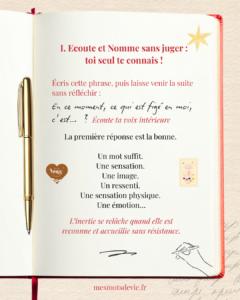 1. Ecoute et Nomme sans juger :
toi seul te connais !
Écris cette phrase, puis laisse venir la suite
sans réfléchir :
En ce moment, ce qui est figé en moi,
c'est... ?
Écoute ta voix intérieure
La première réponse est la bonne.
Un mot suffit.
Une sensation.
Une image.
Un ressenti.
Une sensation physique.
Une émotion...
L'inertie se relâche quand elle est
reconnue et accueillie sans résistance.
mesmotsdevie.fr